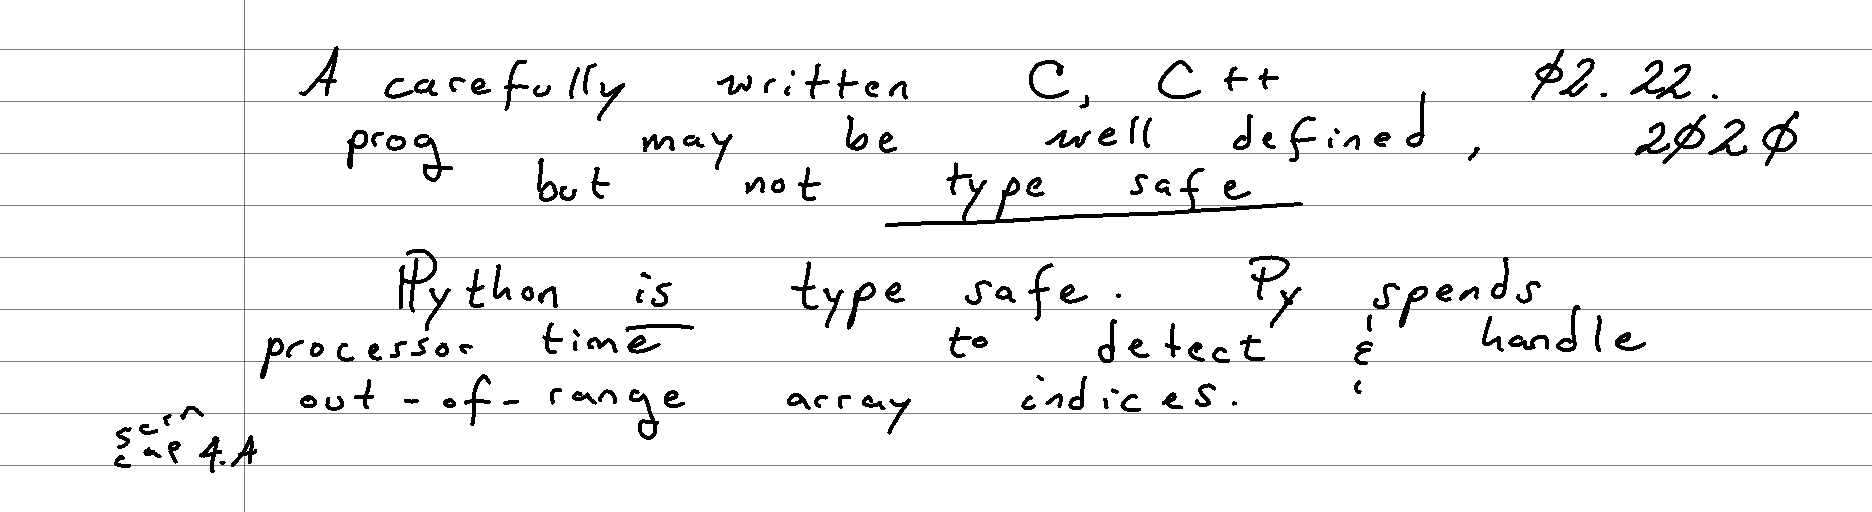 A carefully written C, C++ ø2.22.
prog may be well defined, 2ø2ø
but not type safe
Python is type safe. Py spends
processor time to detect & handle
out-of-range array indices.
4.A